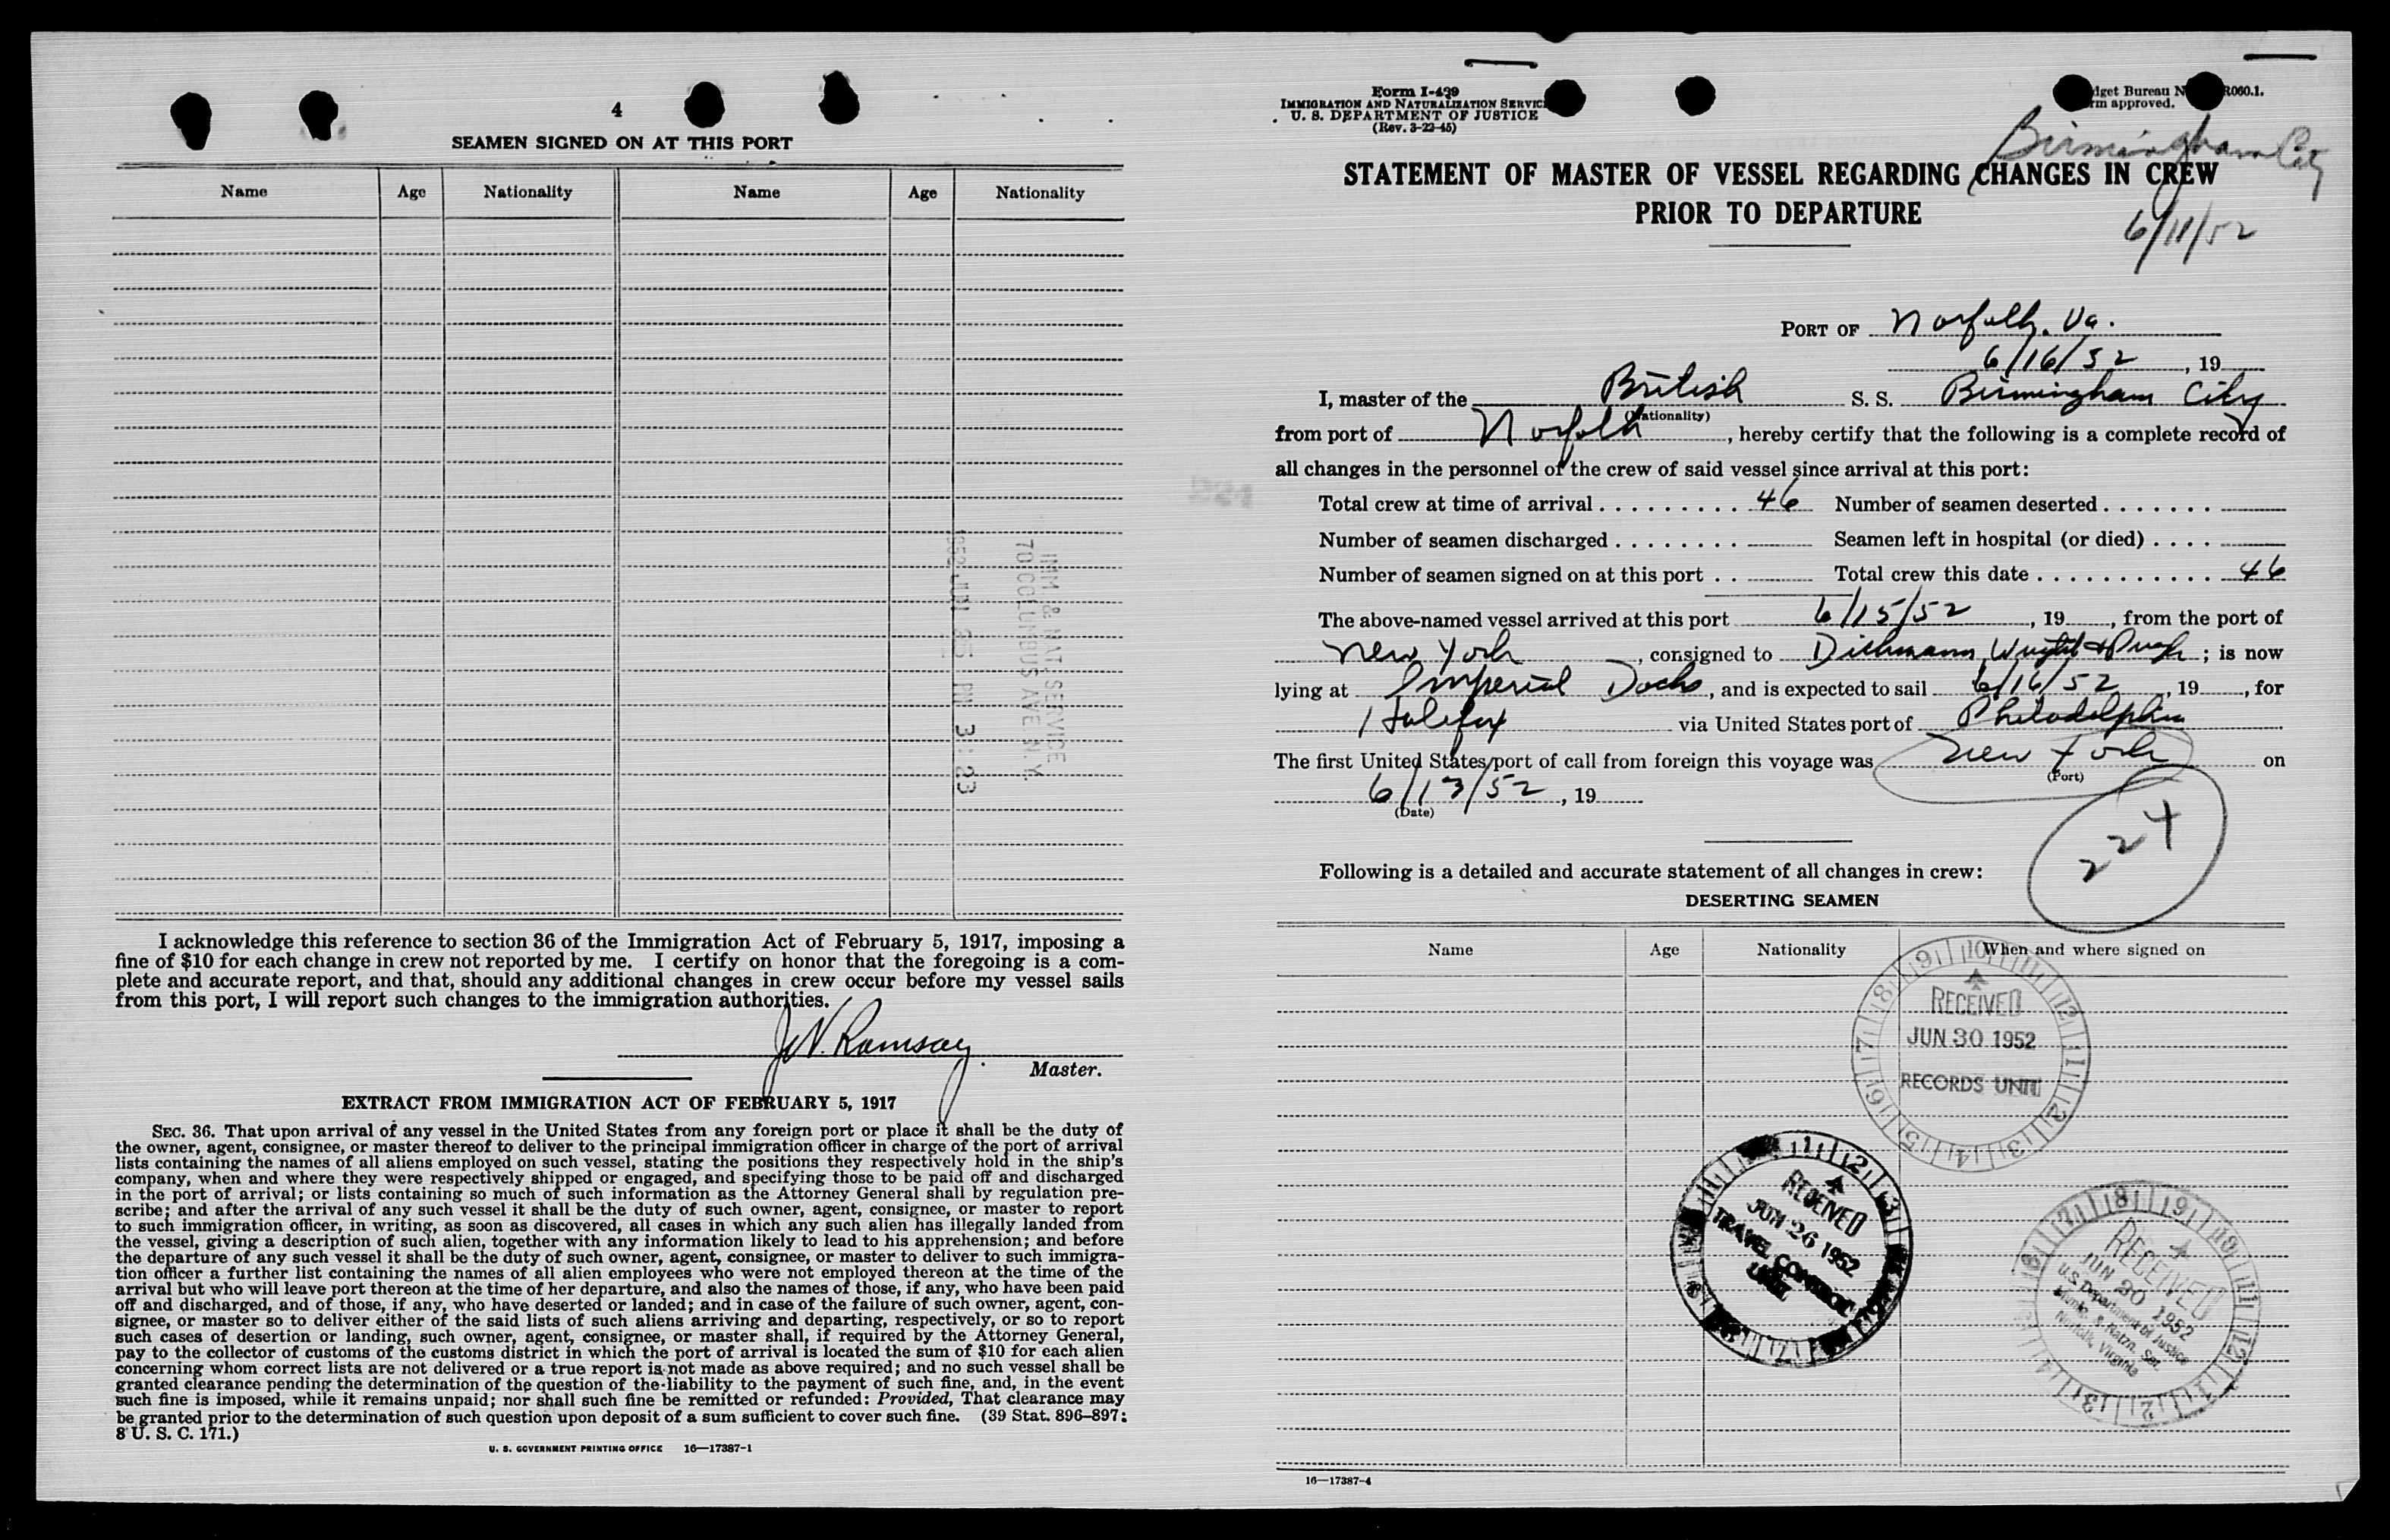 4
SEAMEN SIGNED ON AT THIS PORT
Name Age Nationality Name Age Nationality
IMM & NAT SERVICE
70 COLUMBUS AVE N.Y.
PM 3:23
I acknowledge this reference to section 36 of the Immigration Act of February 5, 1917, imposing a
fine of $10 for each change in crew not reported by me. I certify on honor that the foregoing is a com-
plete and accurate report, and that, should any additional changes in crew occur before my vessel sails
from this port, I will report such changes to the immigration authorities.
Ramsay
Master.
EXTRACT FROM IMMIGRATION ACT OF FEBRUARY 5, 1917
SEC. 36. That upon arrival of any vessel in the United States from any foreign port or place it shall be the duty of
the owner, agent, consignee, or master thereof to deliver to the principal immigration officer in charge of the port of arrival
lists containing the names of all aliens employed on such vessel, stating the positions they respectively hold in the ship's
company, when and where they were respectively shipped or engaged, and specifying those to be paid off and discharged
in the port of arrival; or lists containing so much of such information as the Attorney General shall by regulation pre-
scribe; and after the arrival of any such vessel it shall be the duty of such owner, agent, consignee, or master to report
to such immigration officer, in writing, as soon as discovered, all cases in which any such alien has illegally landed from
the vessel, giving a description of such alien, together with any information likely to lead to his apprehension; and before
the departure of any such vessel it shall be the duty of such owner, agent, consignee, or master to deliver to such immigra-
tion officer a further list containing the names of all alien employees who were not employed thereon at the time of the
arrival but who will leave port thereon at the time of her departure, and also the names of those, if any, who have been paid
off and discharged, and of those, if any, who have deserted or landed; and in case of the failure of such owner, agent, con-
signee, or master so to deliver either of the said lists of such aliens arriving and departing, respectively, or so to report
such cases of desertion or landing, such owner, agent, consignee, or master shall, if required by the Attorney General,
pay to the collector of customs of the customs district in which the port of arrival is located the sum of $10 for each alien
concerning whom correct lists are not delivered or a true report is not made as above required; and no such vessel shall be
granted clearance pending the determination of the question of the liability to the payment of such fine, and, in the event
such fine is imposed, while it remains unpaid; nor shall such fine be remitted or refunded: Provided, That clearance may
be granted prior to the determination of such question upon deposit of a sum sufficient to cover such fine. (39 Stat. 896–897;
8 U. S. C. 171.)
U. S. GOVERNMENT PRINTING OFFICE 16—17387-1
Form I-439
IMMIGRATION AND NATURALIZATION SERVIC
U. S. DEPARTMENT OF JUSTICE
(Rev. 3-22-45)
dget Bureau N R060.1.
rm approved.
Birmingham City
STATEMENT OF MASTER OF VESSEL REGARDING CHANGES IN CREW
PRIOR TO DEPARTURE
6/11/52
PORT OF Norfolk, Va.
6/16/52, 19
I, master of the British S. S. Birmingham City
(Nationality)
from port of Norfolk, hereby certify that the following is a complete record of
all changes in the personnel of the crew of said vessel since arrival at this port:
Total crew at time of arrival . . . . . . . . . . 46 Number of seamen deserted . . . . . . .
Number of seamen discharged . . . . . . . . Seamen left in hospital (or died) . . . .
Number of seamen signed on at this port . . Total crew this date . . . . . . . . . . . . 46
The above-named vessel arrived at this port 6/15/52, 19, from the port of
New York, consigned to Dichmann, Wright & Pugh; is now
lying at Imperial Docks, and is expected to sail 6/16/52, 19, for
Halifax via United States port of Philadelphia
The first United States port of call from foreign this voyage was New York on
(Port)
6/13/52, 19
(Date)
224
Following is a detailed and accurate statement of all changes in crew:
DESERTING SEAMEN
Name Age Nationality When and where signed on
RECEIVED
JUN 30 1952
RECORDS UNIT
RECEIVED
JUN 26 1952
TRAVEL CONTROL
UNIT
RECEIVED
JUN 30 1952
U.S. Department of Justice
Immig. & Natzn. Ser.
Norfolk, Virginia
16—17387-4